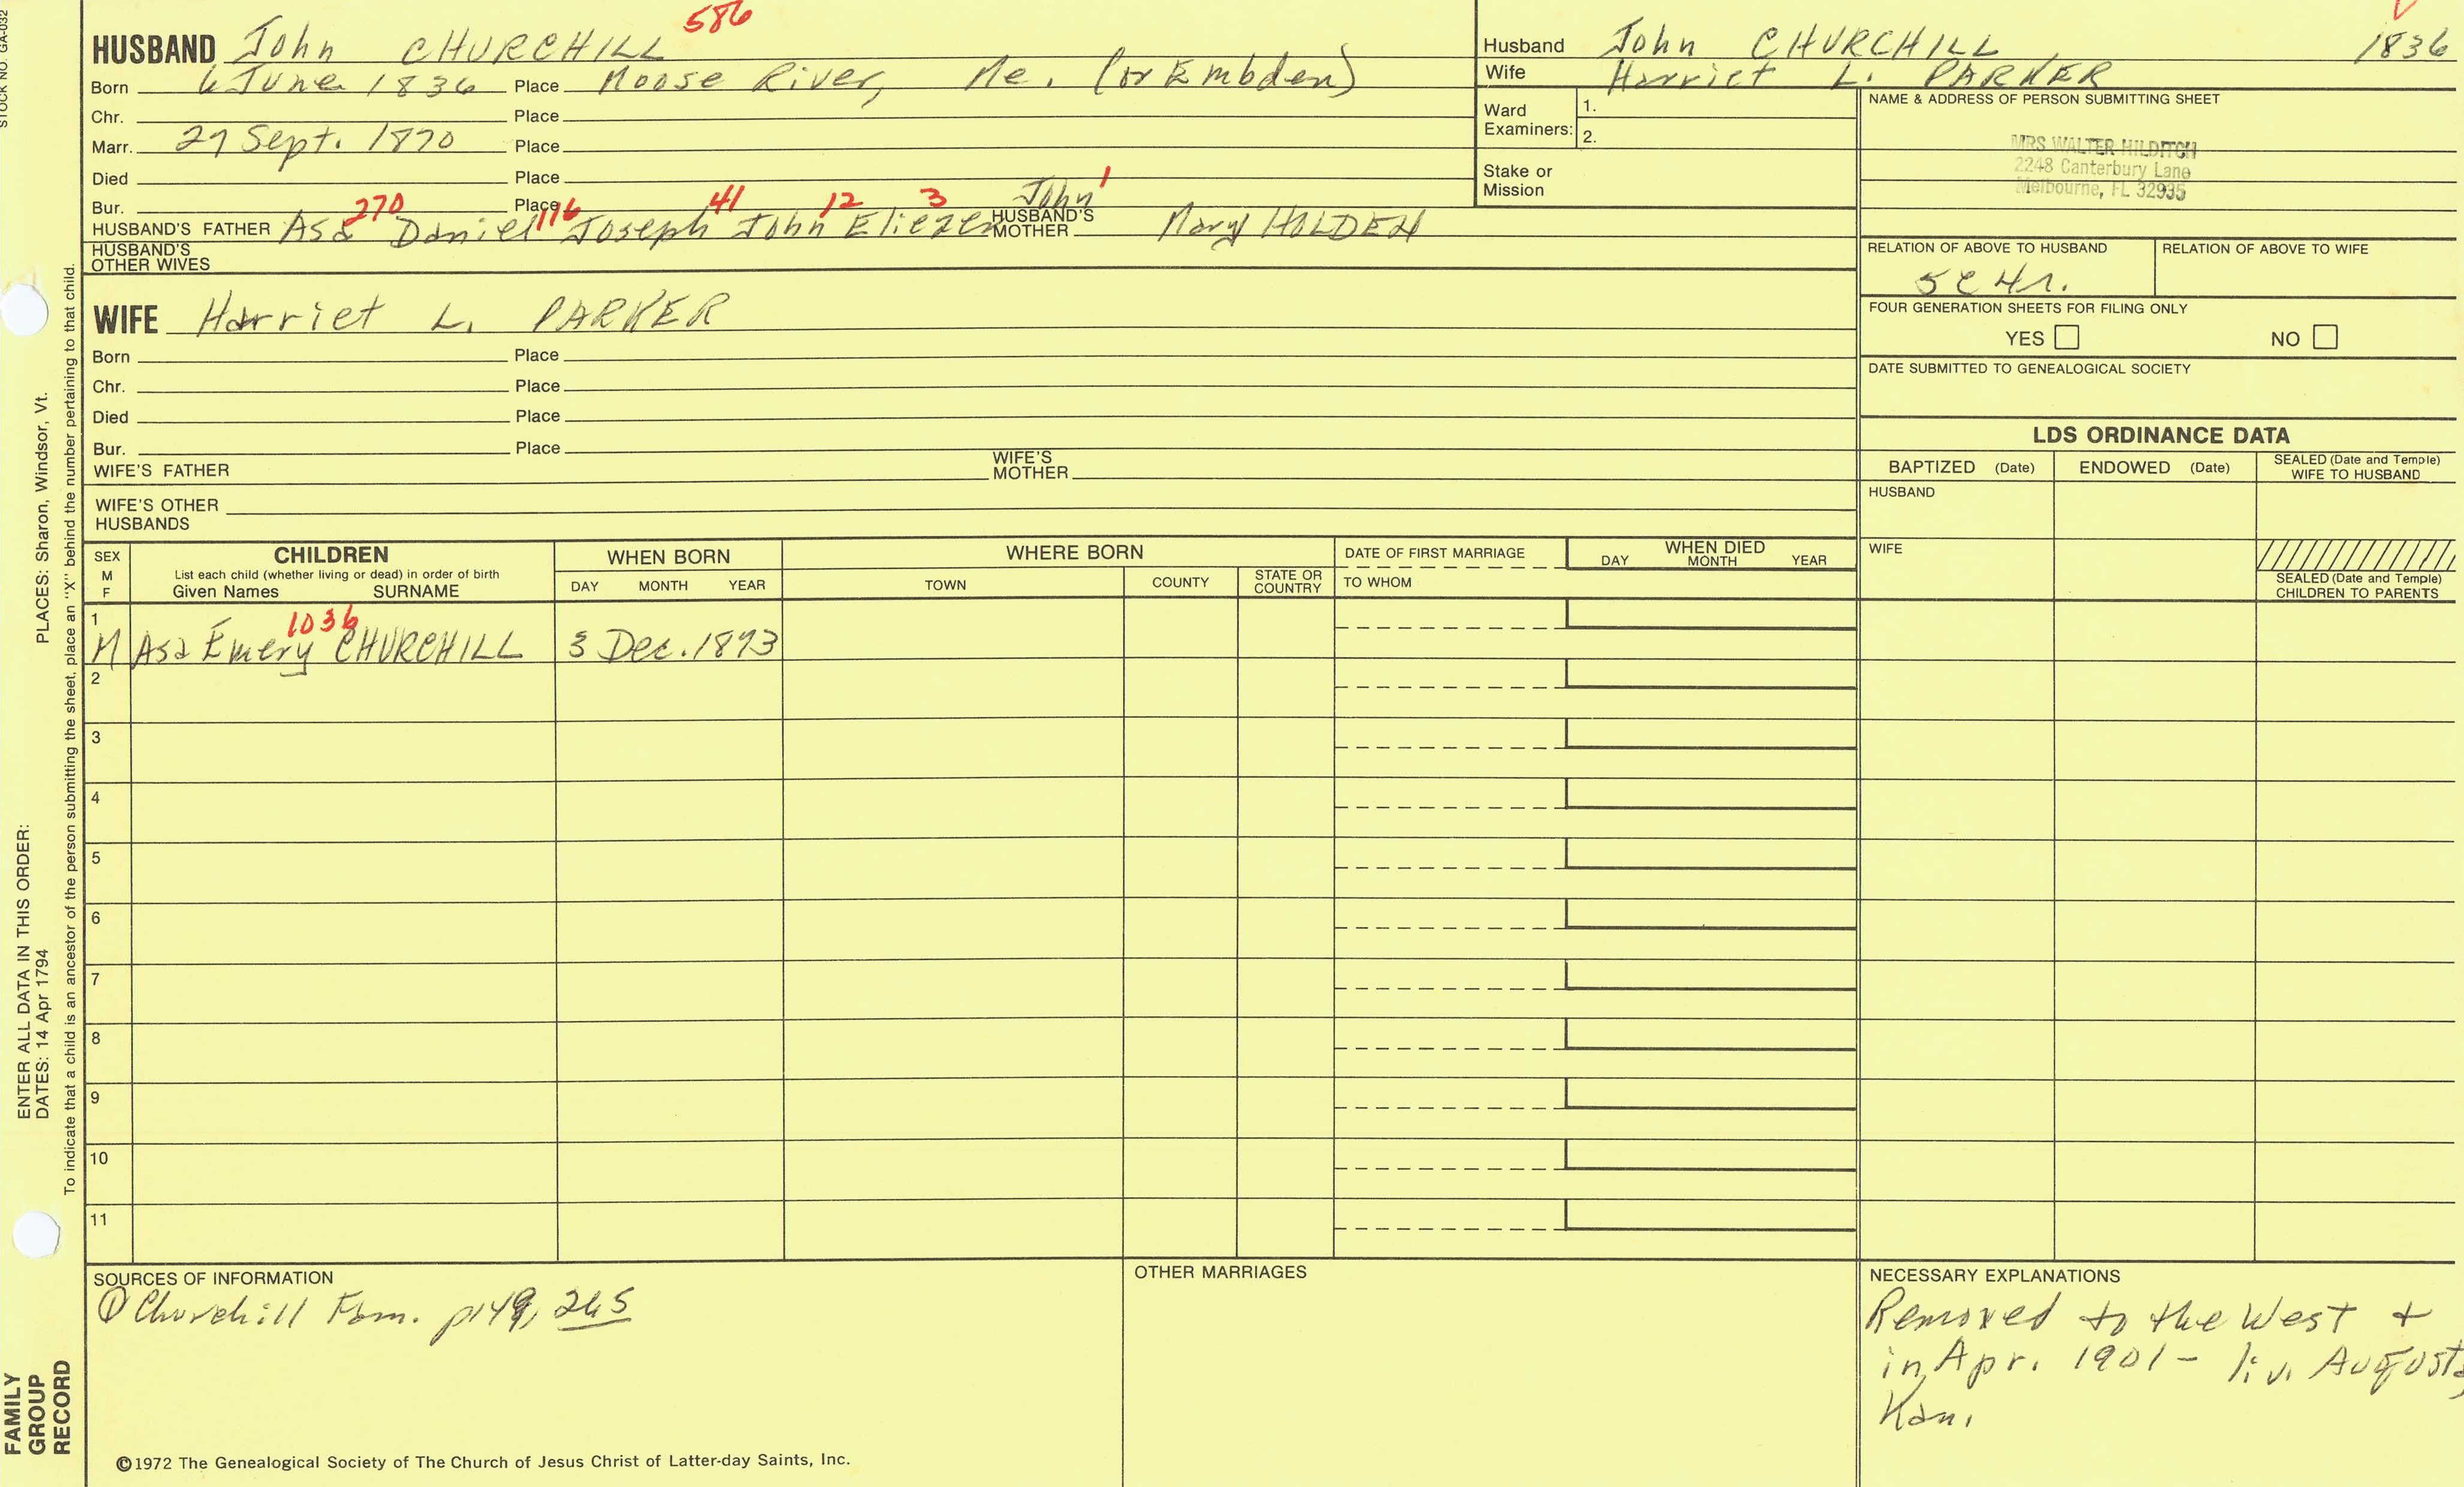 STOCK NO. GA-032
586
HUSBAND John CHURCHILL
Born 6 June 1836 Place Moose River, Me. (or Embden)
Chr. Place
Marr. 27 Sept. 1870 Place
Died Place
Bur. Place
270 116 41 12 3 John 1
HUSBAND'S FATHER Asa Daniel Joseph John Eliezer HUSBAND'S MOTHER Mary HOLDEN
HUSBAND'S OTHER WIVES
WIFE Harriet L. PARKER
Born Place
Chr. Place
Died Place
Bur. Place
WIFE'S FATHER WIFE'S MOTHER
WIFE'S OTHER HUSBANDS
Husband John CHURCHILL 1836
Wife Harriet L. PARKER
Ward Examiners: 1.
2.
Stake or Mission
NAME & ADDRESS OF PERSON SUBMITTING SHEET
MRS WALTER HILDITCH
2248 Canterbury Lane
Melbourne, FL 32935
RELATION OF ABOVE TO HUSBAND RELATION OF ABOVE TO WIFE
5C 4r.
FOUR GENERATION SHEETS FOR FILING ONLY
YES NO
DATE SUBMITTED TO GENEALOGICAL SOCIETY
LDS ORDINANCE DATA
BAPTIZED (Date) ENDOWED (Date) SEALED (Date and Temple) WIFE TO HUSBAND
HUSBAND
WIFE
SEALED (Date and Temple) CHILDREN TO PARENTS
SEX M F
CHILDREN
List each child (whether living or dead) in order of birth
Given Names SURNAME
WHEN BORN
DAY MONTH YEAR
WHERE BORN
TOWN COUNTY STATE OR COUNTRY
DATE OF FIRST MARRIAGE
TO WHOM
WHEN DIED
DAY MONTH YEAR
1036
1
M Asa Emery CHURCHILL 3 Dec. 1873
2
3
4
5
6
7
8
9
10
11
SOURCES OF INFORMATION
① Churchill Fam. p149, 265
OTHER MARRIAGES
NECESSARY EXPLANATIONS
Removed to the West +
in Apr. 1901 - liv. Augusta,
Kan.
©1972 The Genealogical Society of The Church of Jesus Christ of Latter-day Saints, Inc.
FAMILY GROUP RECORD
ENTER ALL DATA IN THIS ORDER:
DATES: 14 Apr 1794
PLACES: Sharon, Windsor, Vt.
To indicate that a child is an ancestor of the person submitting the sheet, place an "X" behind the number pertaining to that child.